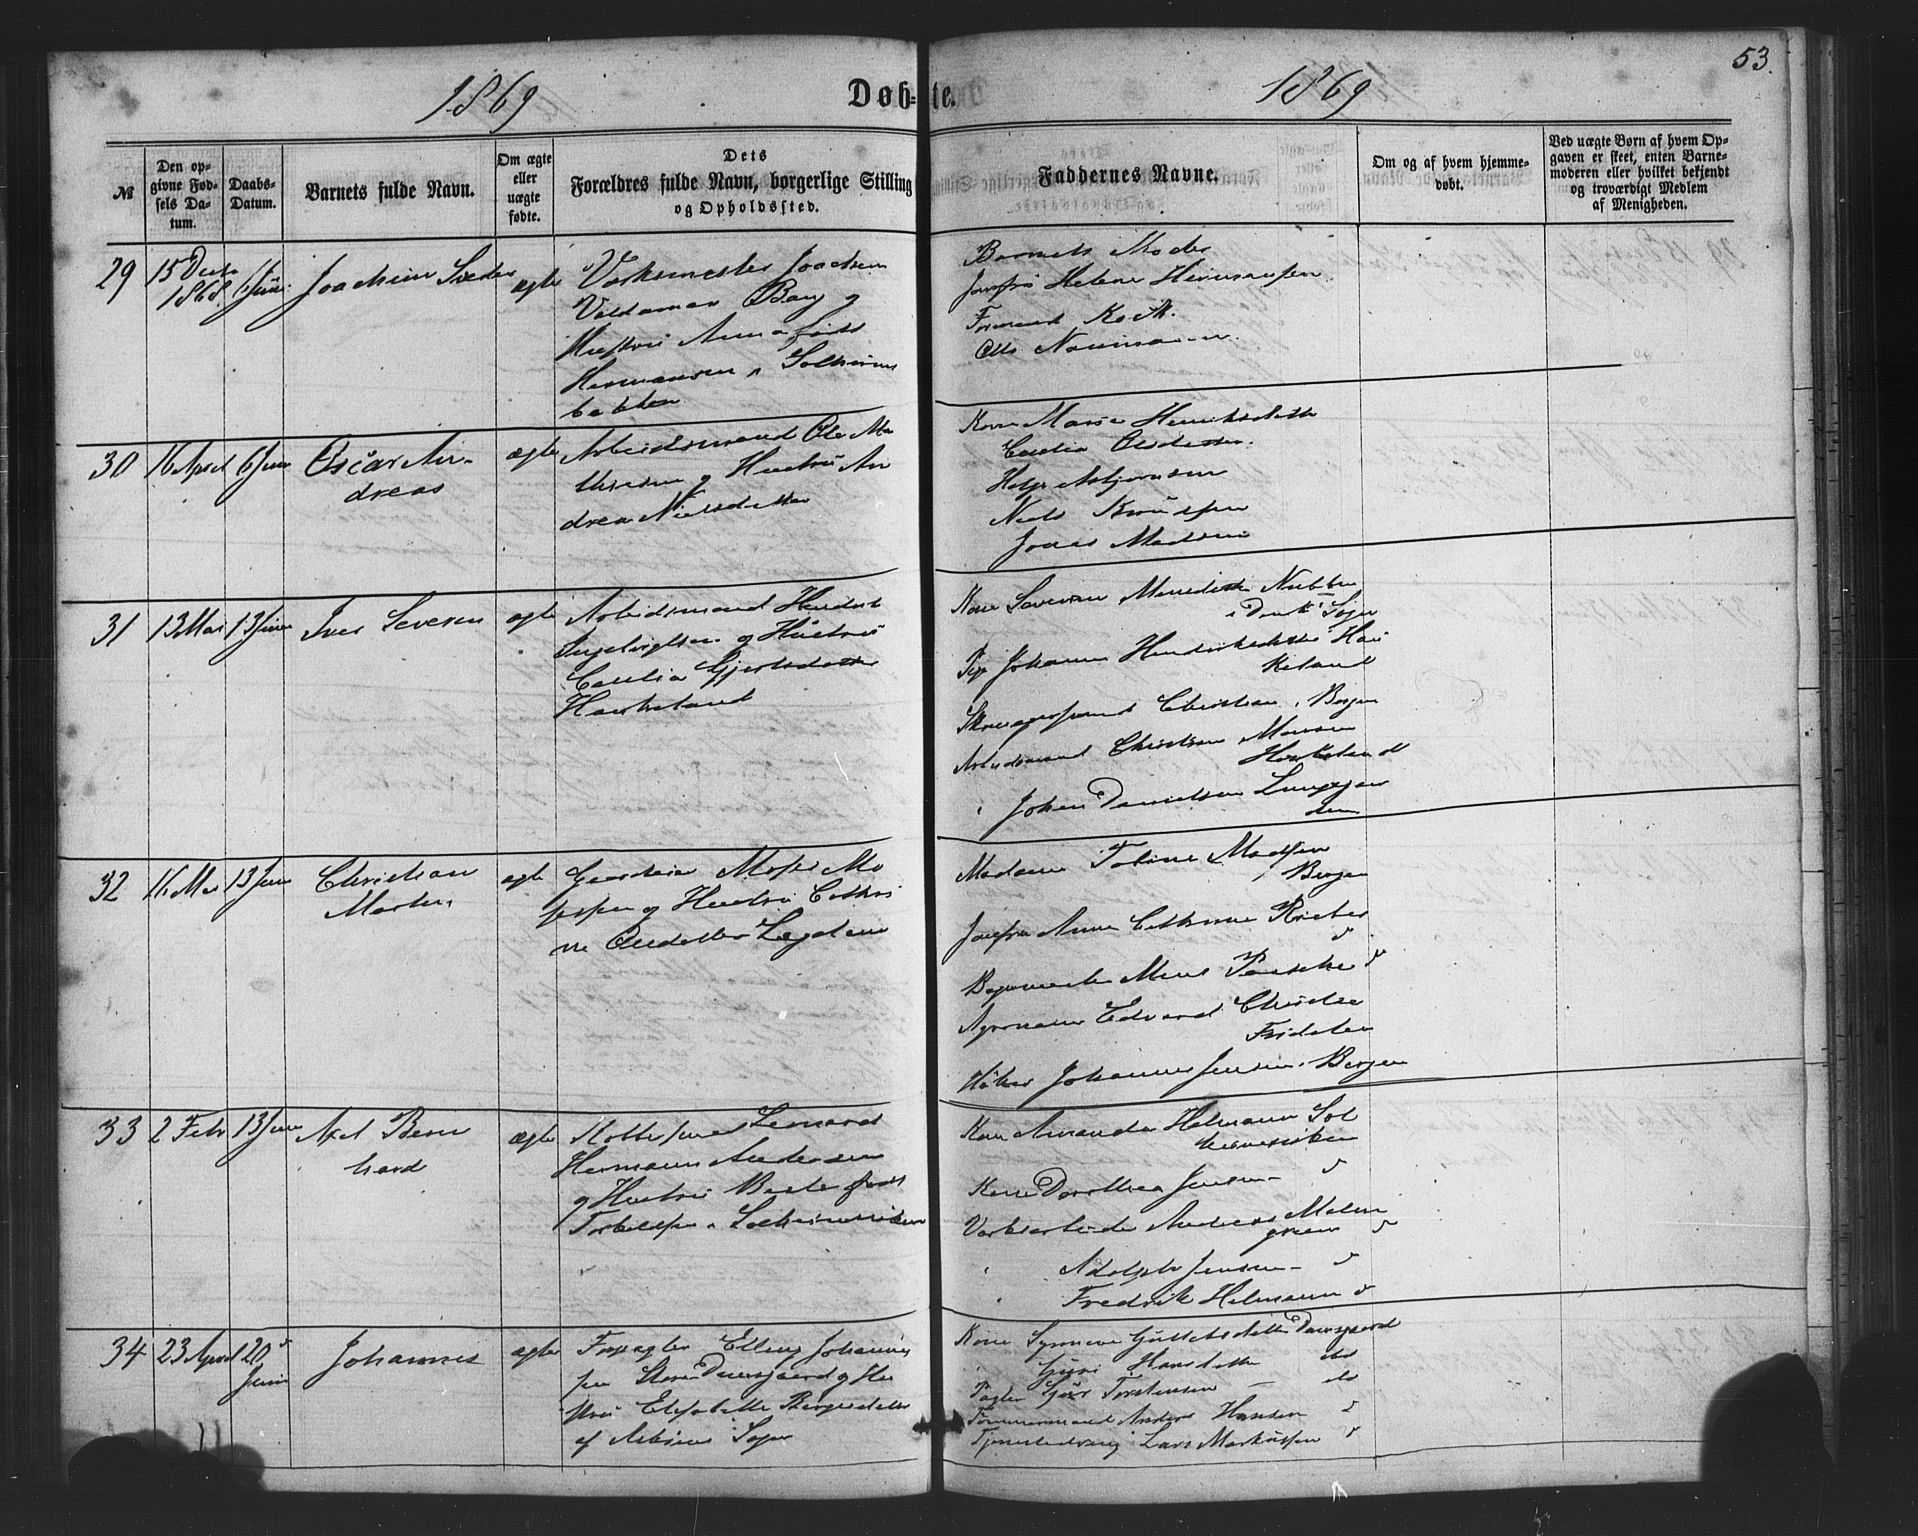 53.
1869
Døb-te.
1869
№
Den op-
givne Fød-
sels Da-
tum.
Daabs-
Datum.
Barnets fulde Navn.
Om ægte
eller
uægte
fødte.
Dets
Forældres fulde Navn, borgerlige Stilling
og Opholdssted.
Faddernes Navne.
Om og af hvem hjemme-
døbt.
Ved uægte Børn af hvem Op-
gaven er skeet, enten Barne-
moderen eller hvilket bekjendt
og troværdigt Medlem
af Menigheden.
29
15 Decbr
1868
6 Juni
Joachim
ægte
Værksmester Joachim
Valdemar
Hustru Anna født
Hermansen i Solheims
bakken
Barnets Moder
Jomfru Helene Hermansen
Formand Koch.
Otto
30
16 April
6 Juni
Oscar An-
dreas
ægte
Arbeidsmand Ole Ma
thiesen og Hustru An
drea Nielsdatter
Kone Marie Henriksdatter
Cecilia Olsdatter
Helge Asbjørnsen
Niels
Jonas Madsen
31
13 Mai
13 Juni
Iver Severin
ægte
Arbeidsmand Hendrik
Ingebrigtsen og Hustru
Cecilia Gjertsdatter
Haukeland
Kone Severine Nubben
i Domk. Sogn
Pige Johanne Hendriksdatter Hau
keland
Christian i Bergen
Arbeidsmand Christian Monsen
Haukeland
" Johan Danielsen Lungegaar
den
32
16 Mai
13 Juni
Christian
Martin
ægte
Gaardeier Moses Mo
sessen og Hustru Cathri
ne Olsdatter Lægdene
Madame Toline Madsen
i Bergen
Jomfru Anne Cathrine Rieber
do
Bagermester Mons do
Agronom Edvard Christie
Fridalen
Høker Johannes Jensen i Bergen
33
2 Febr
13 Juni
Axel Bern
hard
ægte
Leonard
Hermann Andersen
og Hustru Berte født
Torkelsen i Solheimsviken
Kone Amanda Helmann Sol
heimsviken
Kone Dorothea Jensen - do
Værkarbeider Andreas Malm
green do
" Adolph Jensen - do
" Fredrik Helmann do
34
23 April
20
Juni
Johannes
ægte
Forpagter Elling Johannes
sen Store Damsgaard og Hu
stru Elisabeth Børgesdatter
af Askøens Sogn
Kone Synneve Guttormsdatter Damsgaard
" Guri Hansdatter do
Torstensen - do
Tømmermand Anders Hansen do
Tjenestedreng Lars Markussen do